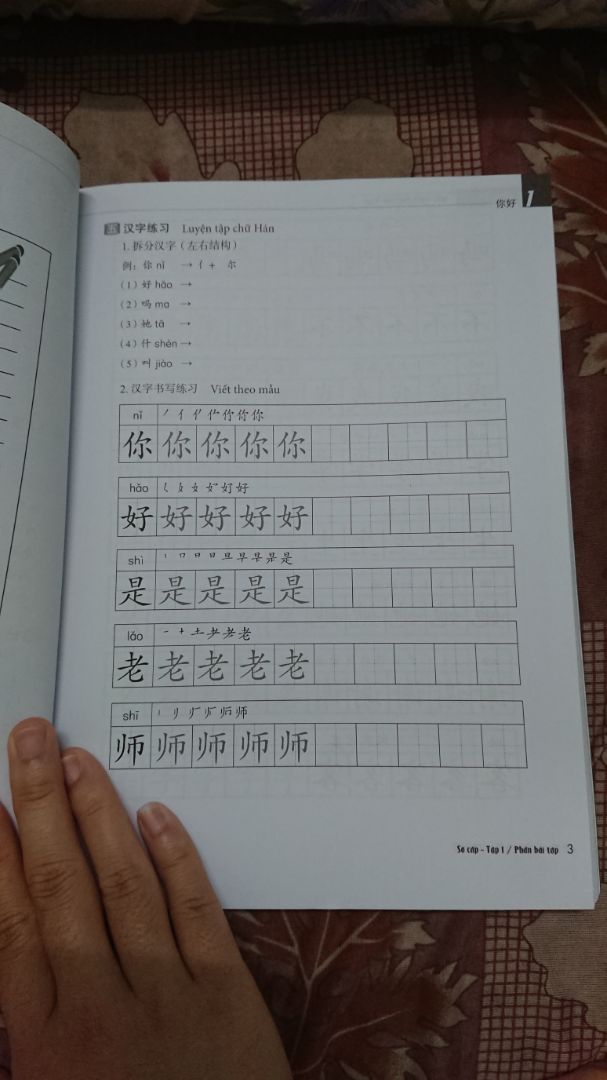 你好 1
五 汉字练习 Luyện tập chữ Hán
1. 拆分汉字（左右结构）
例：你 nǐ → 亻+ 尔
(1) 好 hǎo →
(2) 吗 ma →
(3) 她 tā →
(4) 什 shén →
(5) 叫 jiào →
2. 汉字书写练习 Viết theo mẫu
nǐ
你 你 你 你 你
hǎo
好 好 好 好 好
shì
是 是 是 是 是
lǎo
老 老 老 老 老
shī
师 师 师 师 师
Sơ cấp - Tập 1 / Phần bài tập 3